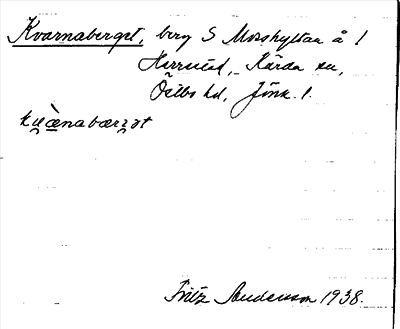 Kvarnaberget, berg S Mosshyltan å 1
Herrestad, Kärda sn,
Östbo hd, Jönk. l.
kṷæ̀nabærg̭ət
Fritz Andersson 1938.